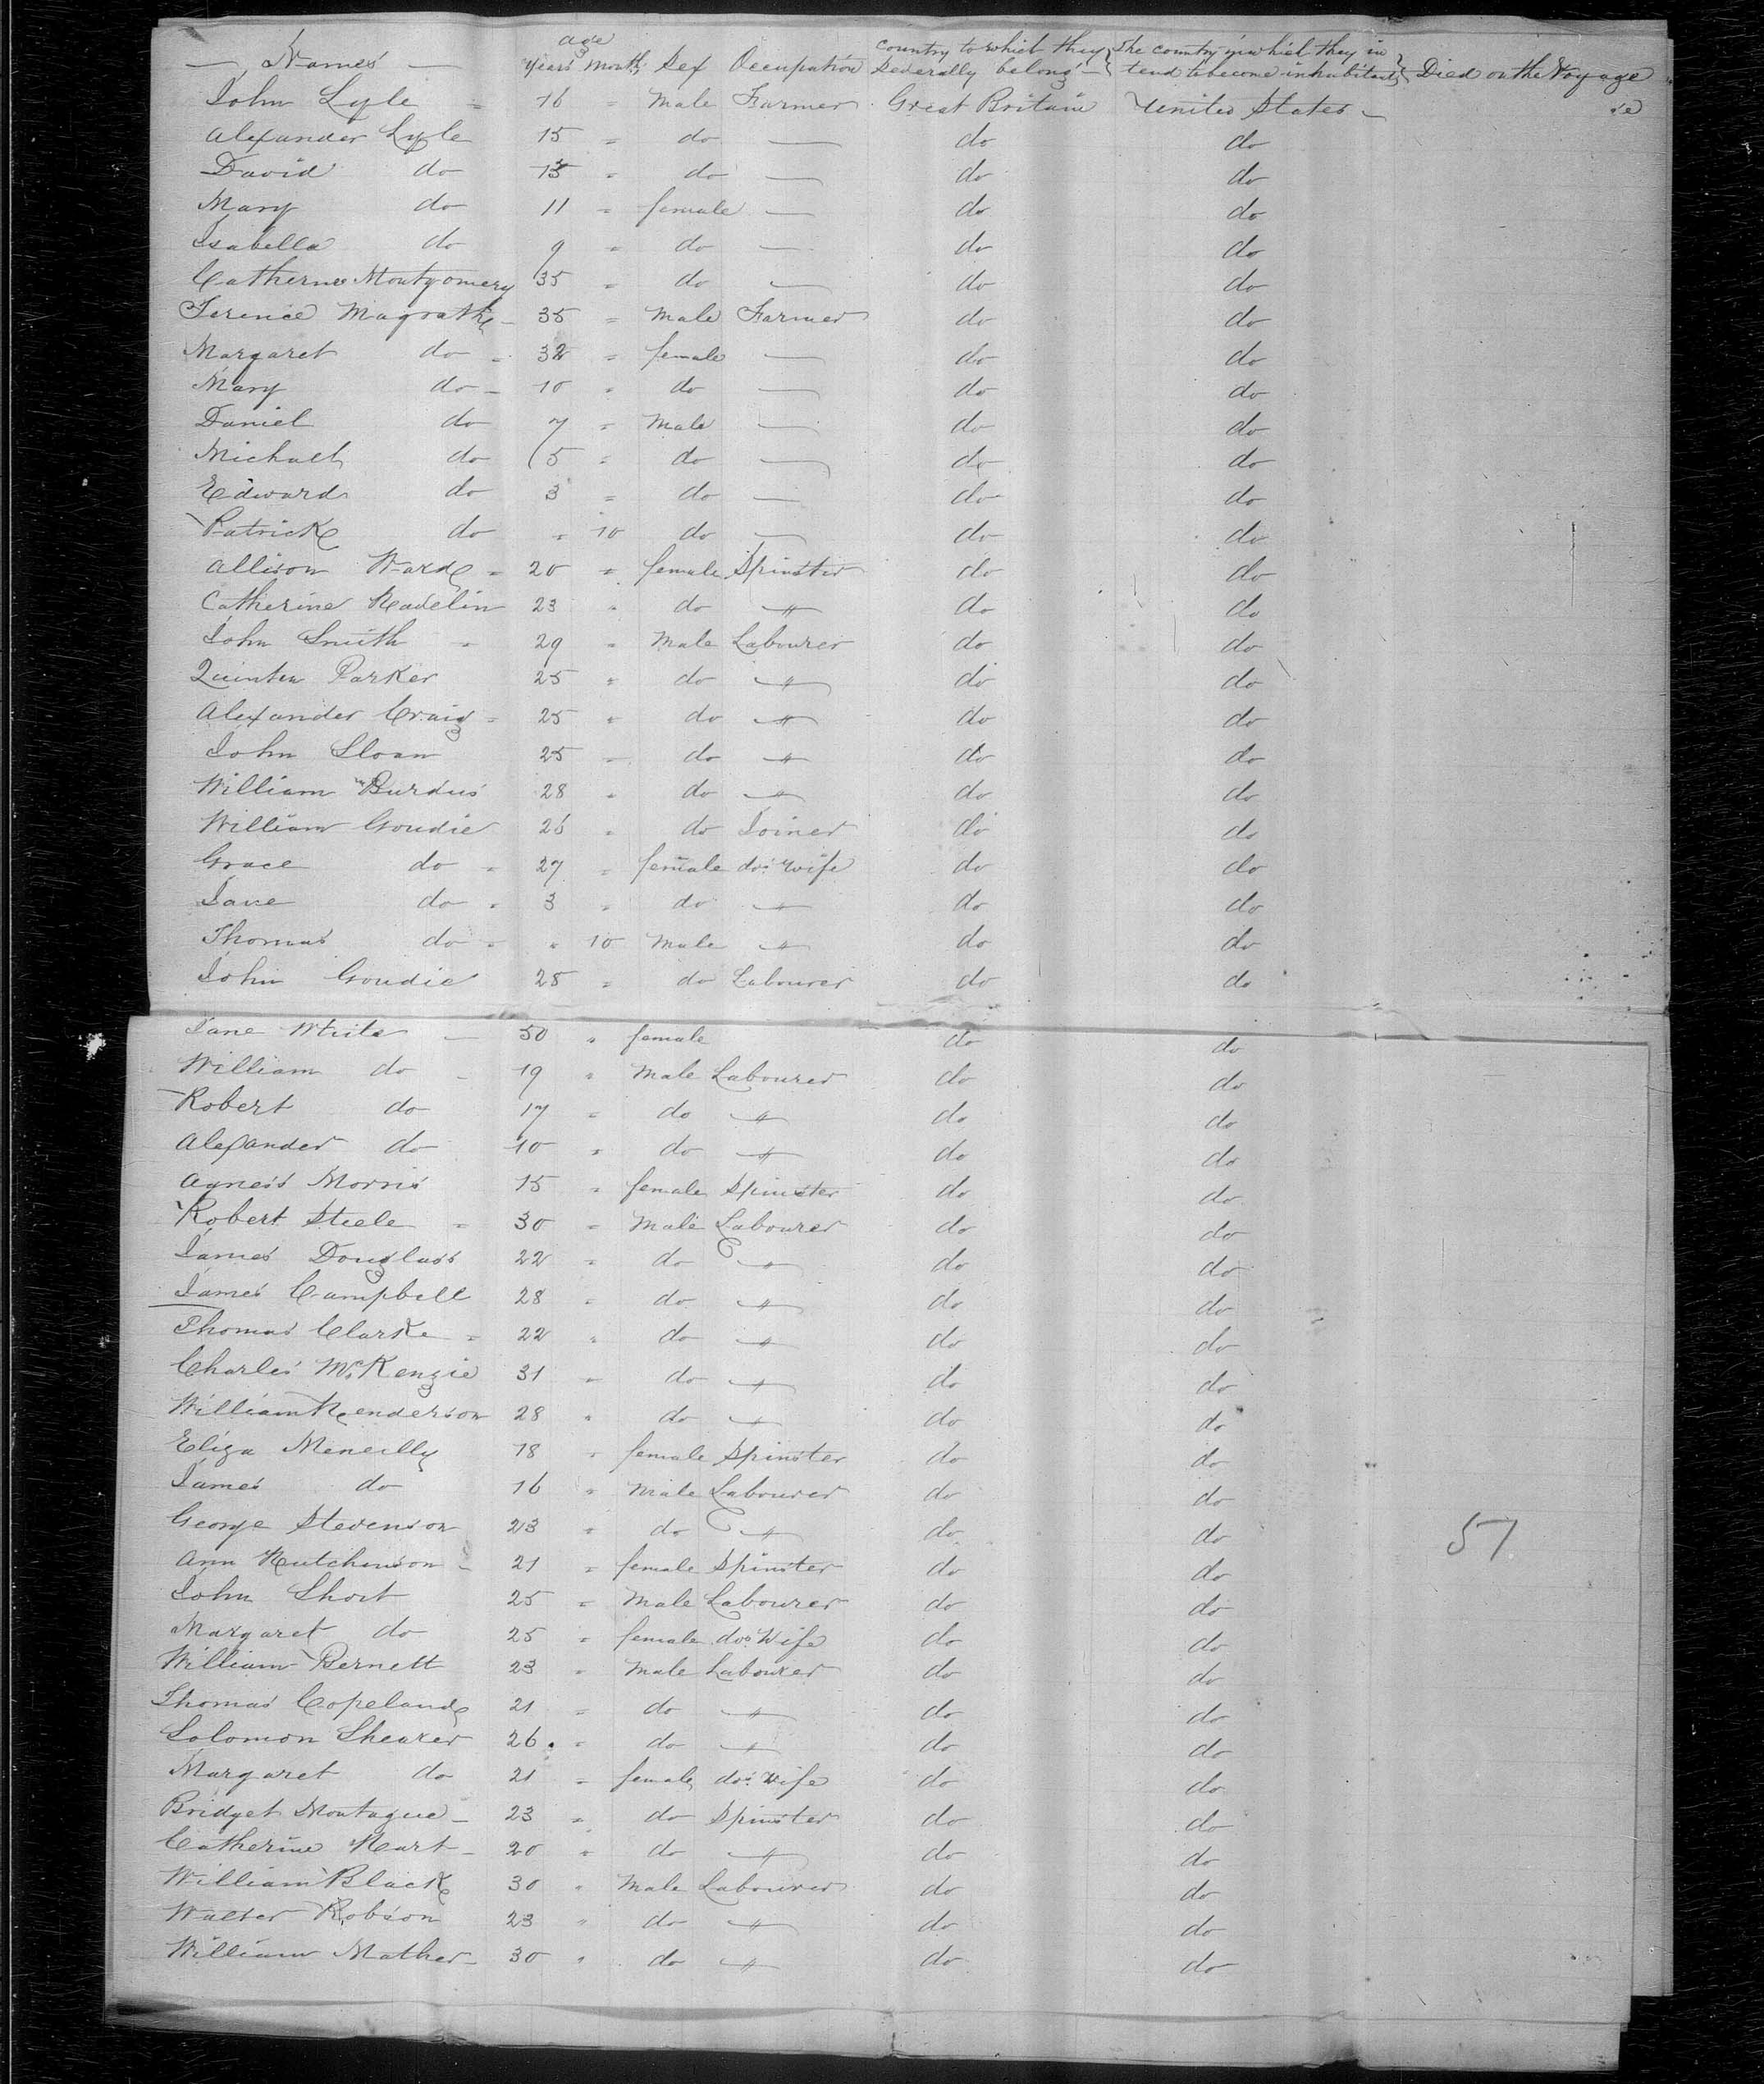 Names age Years Months Sex Occupation Country to which they severally belong The country in which they intend to become inhabitants Died on the Voyage
John Lyle 16 " Male Farmer Great Britain United States
Alexander Lyle 15 " do — do do
David do 13 " do — do do
Mary do 11 " female — do do
Isabella do 9 " do — do do
Catherine Montgomery 35 " do — do do
Terence Magrath 35 " Male Farmer do do
Margaret do 32 " female — do do
Mary do 10 " do — do do
Daniel do 7 " Male — do do
Michael do 5 " do — do do
Edward do 3 " do — do do
Patrick do " 10 do — do do
Allison Ward 20 " female Spinster do do
Catherine 23 " do " do do
John Smith 29 " Male Labourer do do
Quinten Parker 25 " do " do do
Alexander Craig 25 " do " do do
John Sloan 25 " do " do do
William Burdus 28 " do " do do
William Goudie 26 " do Joiner do do
Grace do 27 " female dos. wife do do
Jane do 3 " do " do do
Thomas do " 10 Male " do do
John Goudie 25 " do Labourer do do
Jane White 50 " female do do
William do 19 " Male Labourer do do
Robert do 17 " do " do do
Alexander do 10 " do " do do
Agness Morris 15 " female Spinster do do
Robert Steele 30 " Male Labourer do do
James Douglass 22 " do " do do
James Campbell 28 " do " do do
Thomas Clarke 22 " do " do do
Charles McKenzie 31 " do " do do
William Henderson 28 " do " do do
Eliza Meneilly 18 " female Spinster do do
James do 16 " Male Labourer do do
George Stevenson 23 " do " do do
Ann Hutchinson 21 " female Spinster do do
John Short 25 " Male Labourer do do
Margaret do 25 " female dos. Wife do do
William Bernett 23 " Male Labourer do do
Thomas Copeland 21 " do " do do
Solomon Shearer 26 " do " do do
Margaret do 21 " female dos. Wife do do
Bridget Montague 23 " do Spinster do do
Catherine Hart 20 " do " do do
William Black 30 " Male Labourer do do
Walter Robson 23 " do " do do
William Mather 30 " do " do do
51